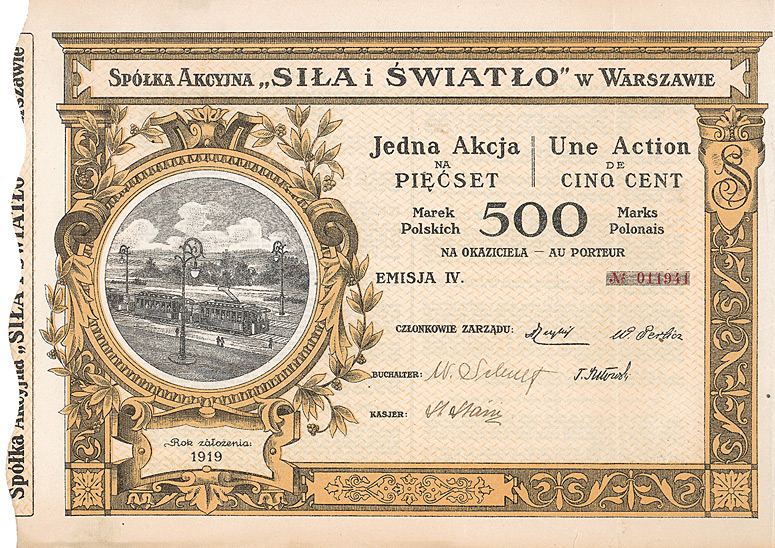 SPÓŁKA AKCYJNA „SIŁA i ŚWIATŁO” W WARSZAWIE
Jedna Akcja
NA
PIĘĆSET
Une Action
DE
CINQ CENT
Marek Polskich 500 Marks Polonais
NA OKAZICIELA — AU PORTEUR
EMISJA IV.
№ 011941
CZŁONKOWIE ZARZĄDU:
BUCHALTER:
KASJER:
Rok założenia:
1919
Spółka Akcyjna „SIŁA i ŚWIATŁO” w Warszawie